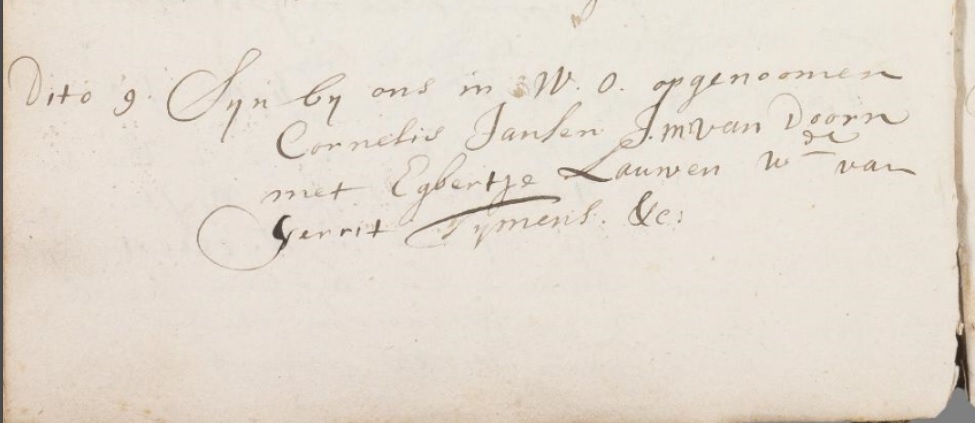 Dito 9. Syn by ons in W. O. opgenoomen
Cornelis Jansen J.m van Doorn
met Egbertje Lauwen Wde van
Gerrit Tymens. &c: